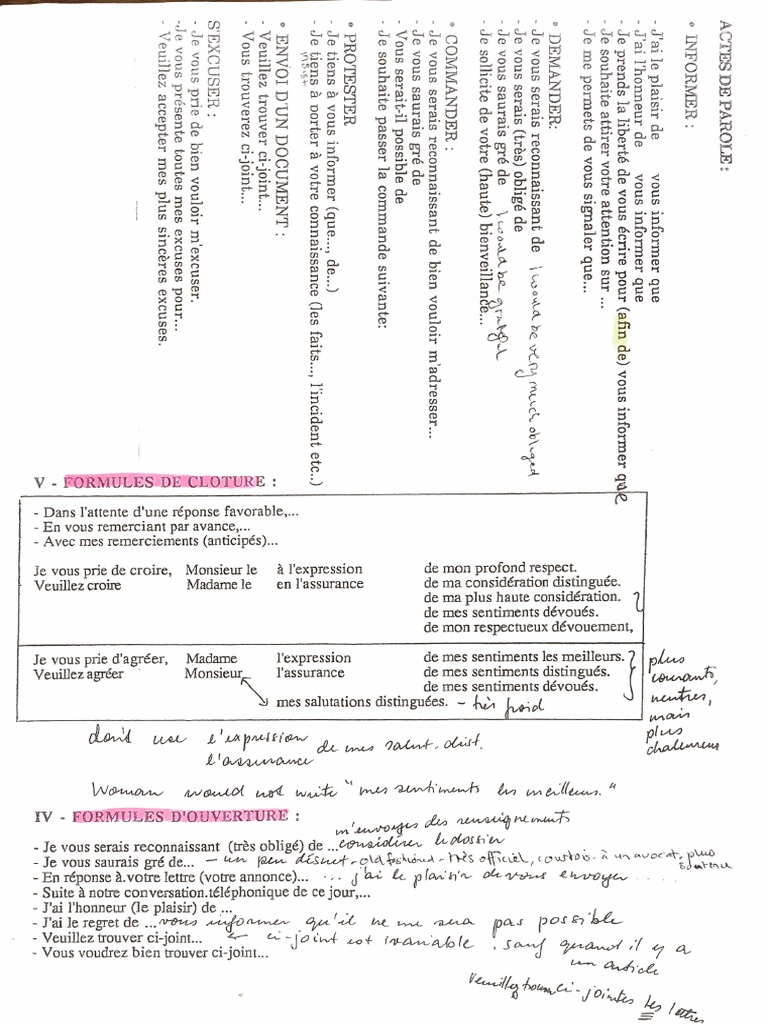 ACTES DE PAROLE:
• INFORMER :
- J'ai le plaisir de vous informer que
- J'ai l'honneur de vous informer que
- Je prends la liberté de vous écrire pour (afin de) vous informer que
- Je souhaite attirer votre attention sur ...
- Je me permets de vous signaler que...
• DEMANDER:
- Je vous serais reconnaissant de
- Je vous serais (très) obligé de I would be very much obliged
- Je vous saurais gré de I would be grateful
- Je sollicite de votre (haute) bienveillance...
• COMMANDER :
- Je vous serais reconnaissant de bien vouloir m'adresser...
- Je vous saurais gré de
- Vous serait-il possible de
- Je souhaite passer la commande suivante:
• PROTESTER
- Je tiens à vous informer (que..., de...)
- Je tiens à porter à votre connaissance (les faits..., l'incident etc..)
insist
• ENVOI D'UN DOCUMENT :
- Veuillez trouver ci-joint...
- Vous trouverez ci-joint...
S'EXCUSER :
- Je vous prie de bien vouloir m'excuser.
- Je vous présente toutes mes excuses pour...
- Veuillez accepter mes plus sincères excuses.
V - FORMULES DE CLOTURE :
- Dans l'attente d'une réponse favorable,...
- En vous remerciant par avance,...
- Avec mes remerciements (anticipés)...
Je vous prie de croire, Monsieur le à l'expression de mon profond respect.
Veuillez croire Madame le en l'assurance de ma considération distinguée.
de ma plus haute considération.
de mes sentiments dévoués.
de mon respectueux dévouement,
Je vous prie d'agréer, Madame l'expression de mes sentiments les meilleurs.
Veuillez agréer Monsieur l'assurance de mes sentiments distingués.
de mes sentiments dévoués.
mes salutations distinguées. - très froid
plus
courants,
neutres,
mais
plus
chaleureux
don't use l'expression de mes salut. dist.
l'assurance
Woman would not write "mes sentiments les meilleurs."
IV - FORMULES D'OUVERTURE :
m'envoyer des renseignements
- Je vous serais reconnaissant (très obligé) de ...considérer le dossier
- Je vous saurais gré de... - un peu désuet - old fashioned - très officiel, courtois - à un avocat, plus
- En réponse à votre lettre (votre annonce)... ... j'ai le plaisir de vous envoyer ....
- Suite à notre conversation téléphonique de ce jour,...
- J'ai l'honneur (le plaisir) de ...
- J'ai le regret de ...vous informer qu'il ne me sera pas possible
- Veuillez trouver ci-joint... ← ci-joint est invariable. sauf quand il y a
un article
- Vous voudrez bien trouver ci-joint...
Veuillez trouver ci-jointes les lettres